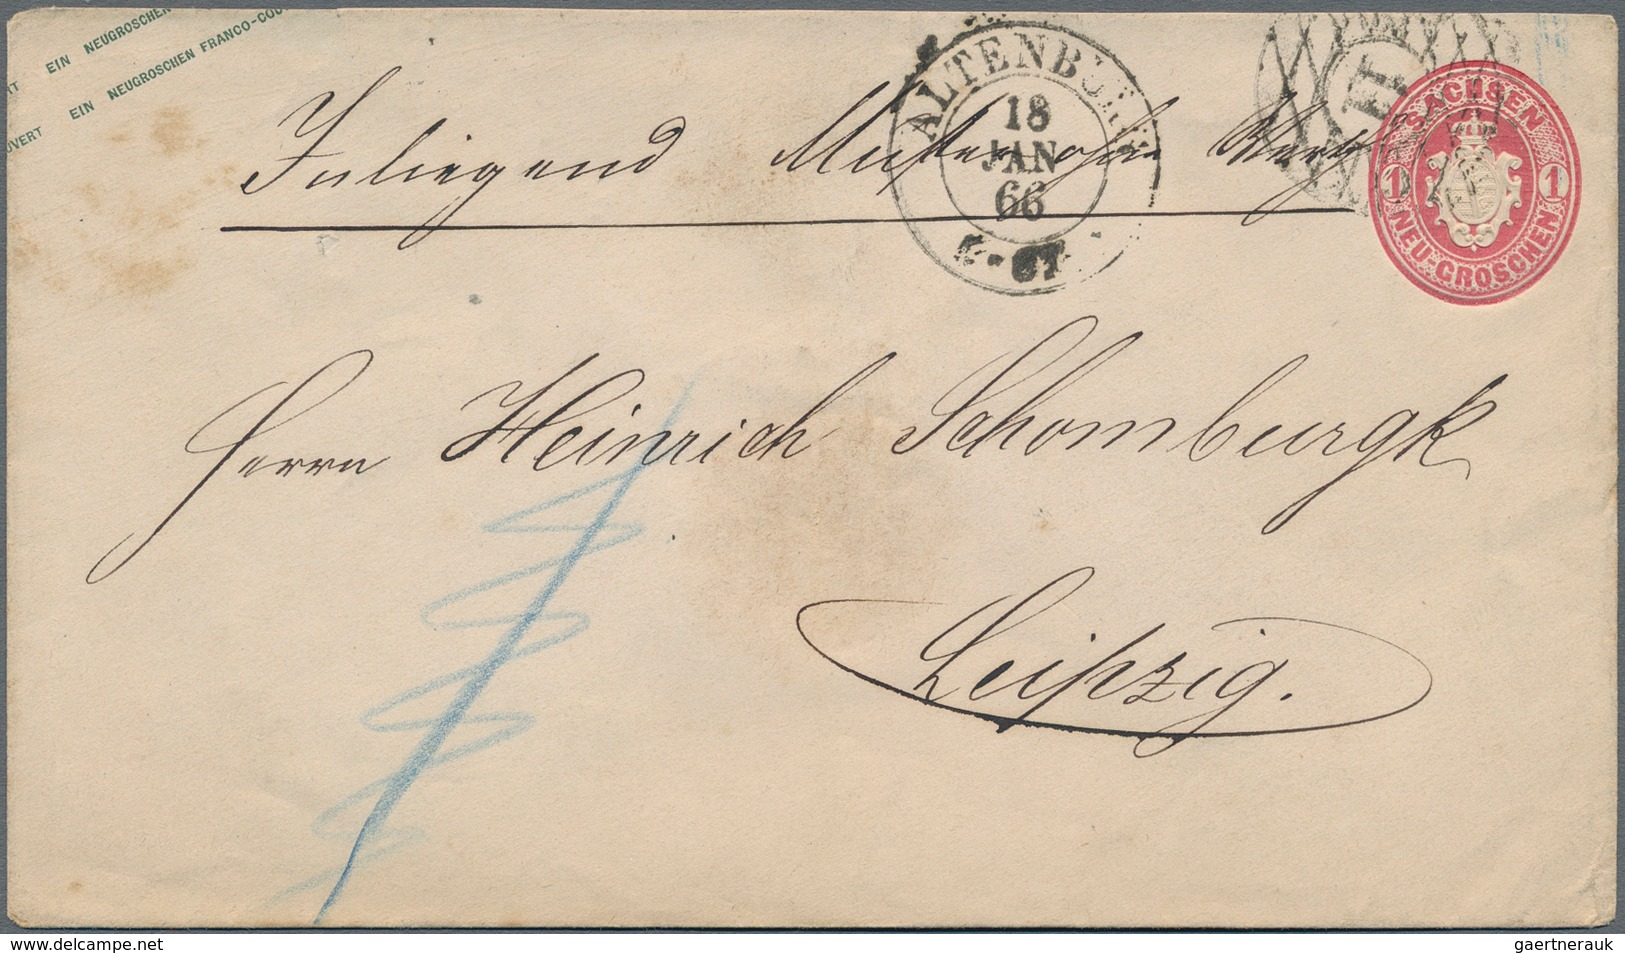 EIN NEUGROSCHEN
RT EIN NEUGROSCHEN FRANCO-COU
UVERT
ALTENBURG
18
JAN
66
SACHSEN
1 1
NEU-GROSCHEN
Inliegend Muster ohne Werth
Herrn Heinrich Schomburgk
Leipzig.
delcampe.net
gaertnerauk